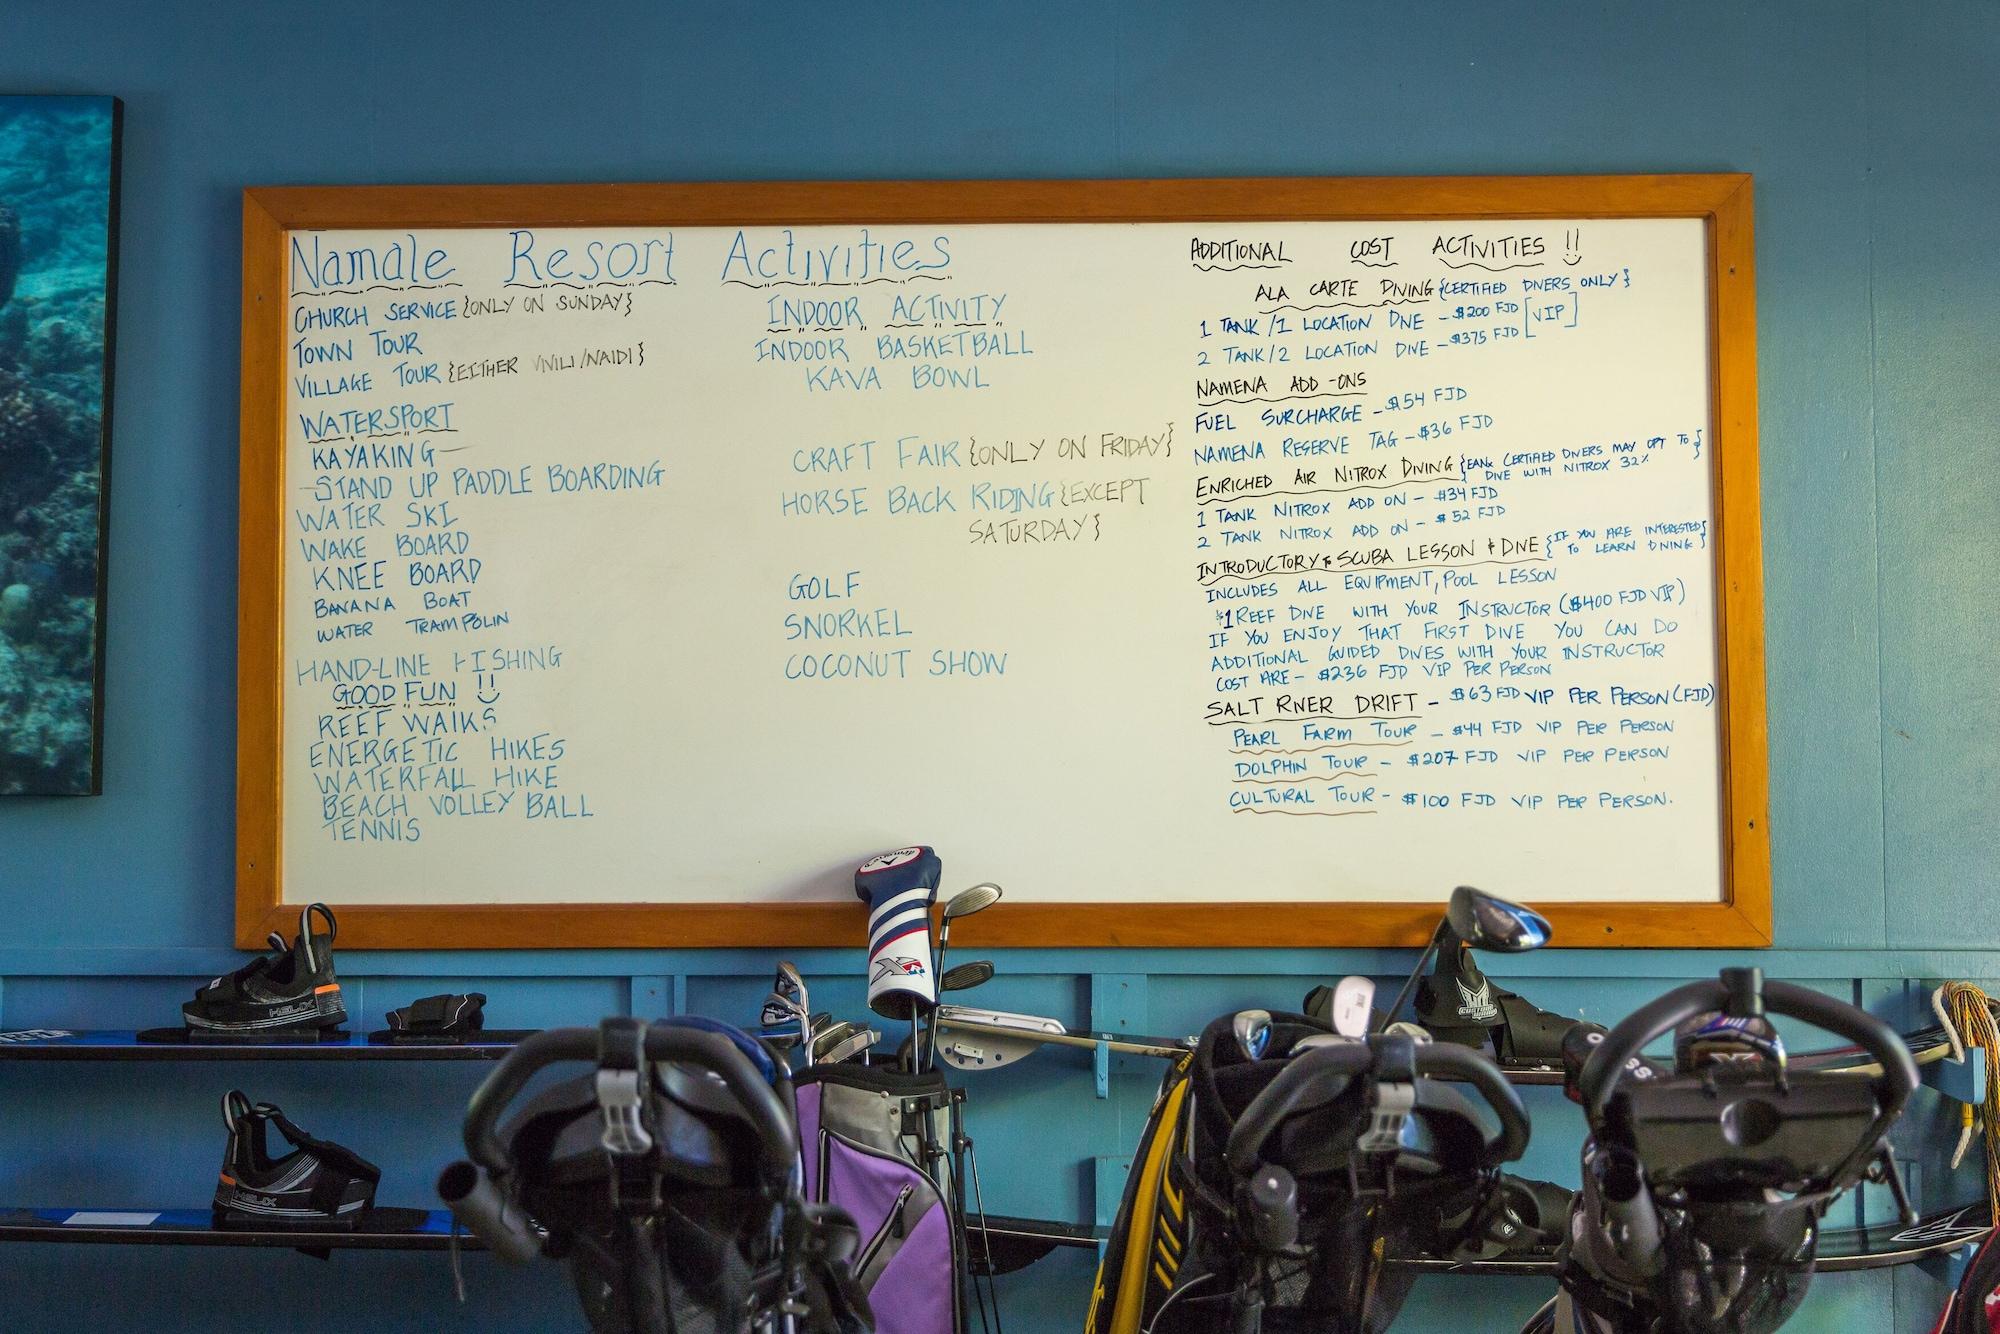 Namale Resort Activities
CHURCH SERVICE {ONLY ON SUNDAY}
TOWN TOUR
VILLAGE TOUR {EITHER VIVILI/NAIDI}
WATERSPORT
KAYAKING
STAND UP PADDLE BOARDING
WATER SKI
WAKE BOARD
KNEE BOARD
BANANA BOAT
WATER TRAMPOLIN
HAND-LINE FISHING
GOOD FUN !!
REEF WALKS
ENERGETIC HIKES
WATERFALL HIKE
BEACH VOLLEY BALL
TENNIS
INDOOR ACTIVITY
INDOOR BASKETBALL
KAVA BOWL
CRAFT FAIR {ONLY ON FRIDAY}
HORSE BACK RIDING {EXCEPT
SATURDAY}
GOLF
SNORKEL
COCONUT SHOW
ADDITIONAL COST ACTIVITIES !!
ALA CARTE DIVING {CERTIFIED DIVERS ONLY}
1 TANK/1 LOCATION DIVE - $200 FJD [VIP]
2 TANK/2 LOCATION DIVE - $375 FJD
NAMENA ADD-ONS
FUEL SURCHARGE - $54 FJD
NAMENA RESERVE TAG - $36 FJD
ENRICHED AIR NITROX DIVING {EANx CERTIFIED DIVERS MAY OPT TO
DIVE WITH NITROX 32%}
1 TANK NITROX ADD ON - $34 FJD
2 TANK NITROX ADD ON - $52 FJD
INTRODUCTORY TO SCUBA LESSON & DIVE {IF YOU ARE INTERESTED
TO LEARN DIVING}
INCLUDES ALL EQUIPMENT, POOL LESSON
& 1 REEF DIVE WITH YOUR INSTRUCTOR ($400 FJD VIP)
IF YOU ENJOY THAT FIRST DIVE YOU CAN DO
ADDITIONAL GUIDED DIVES WITH YOUR INSTRUCTOR
COST ARE - $236 FJD VIP PER PERSON
SALT RIVER DRIFT - $63 FJD VIP PER PERSON (FJD)
PEARL FARM TOUR - $44 FJD VIP PER PERSON
DOLPHIN TOUR - $207 FJD VIP PER PERSON
CULTURAL TOUR - $100 FJD VIP PER PERSON.
HELIX
HELIX